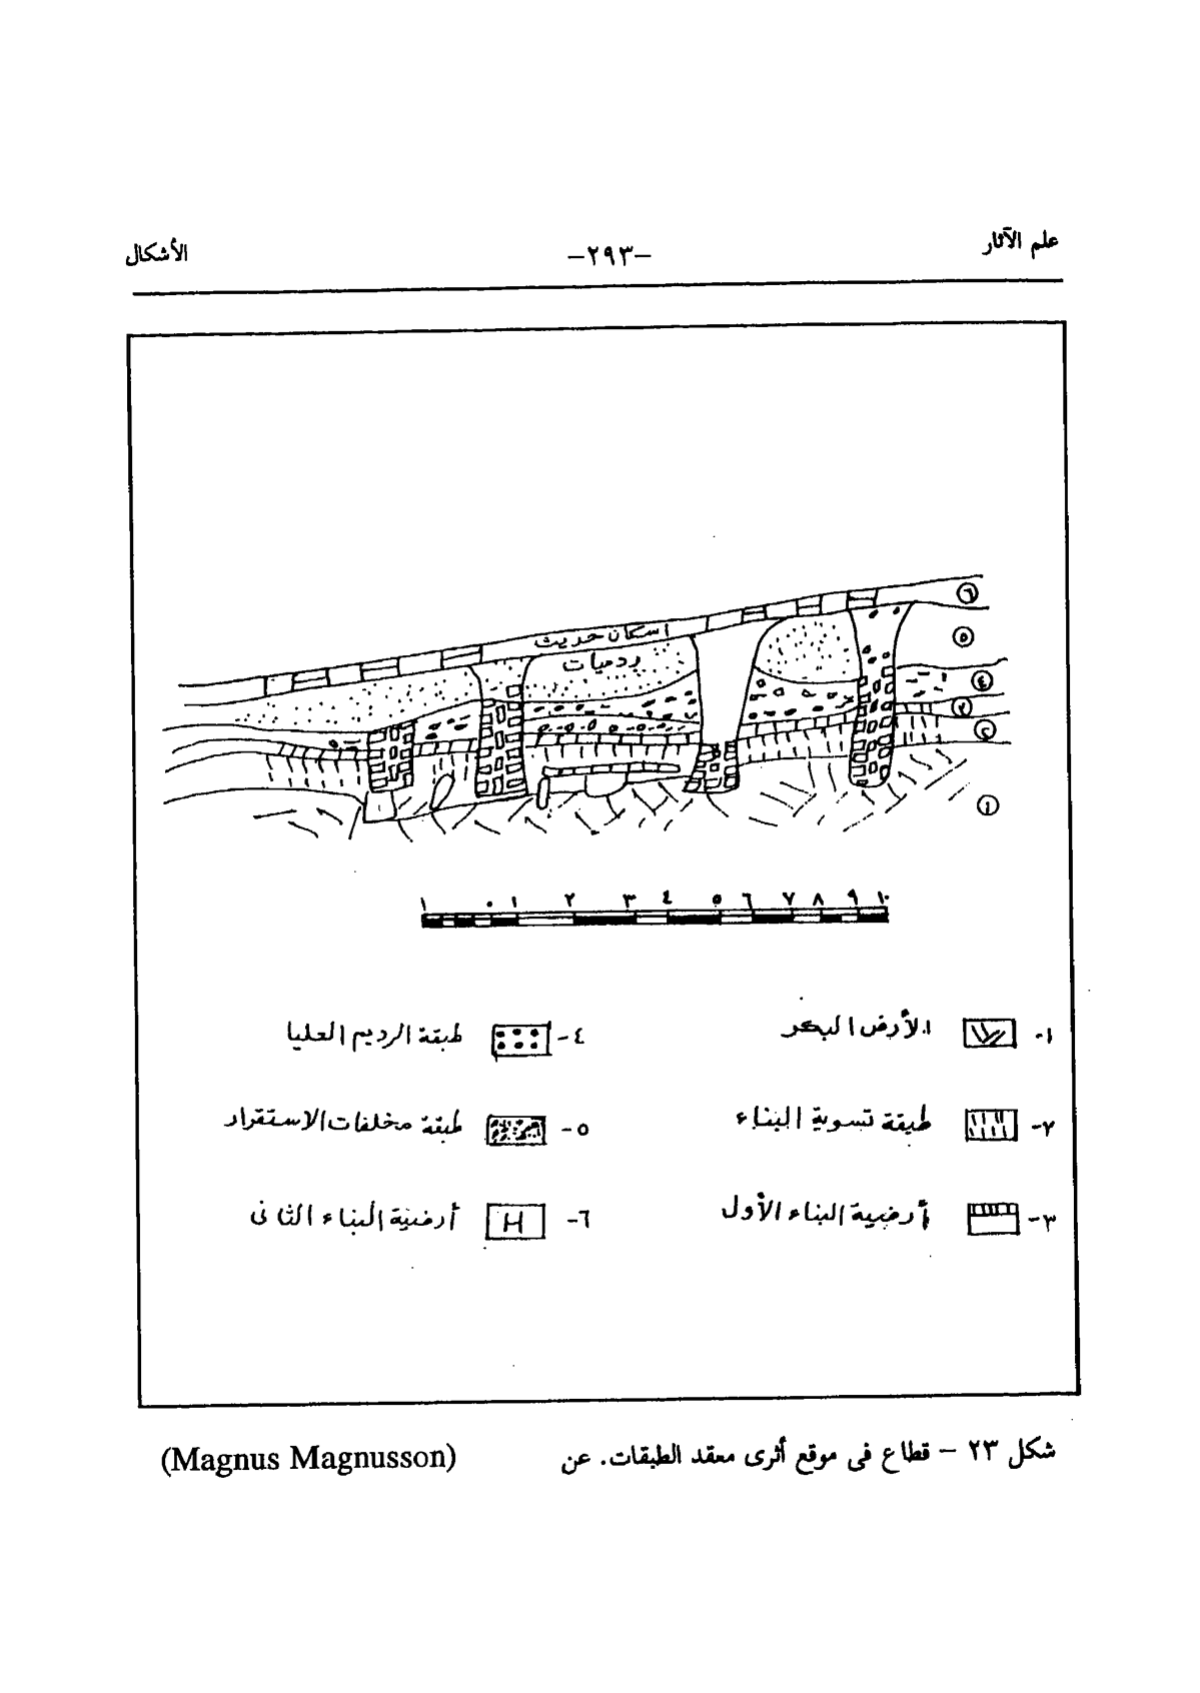 علم الآثار
-٢٩٣-
الأشكال
اسكان حديث
رديمات
٦
٥
٤
٣
٢
١
١ ٠ ١ ٢ ٣ ٤ ٥ ٦ ٧ ٨ ٩ ١٠
١- الأرض البكر
٢- طبقة تسوية البناء
٣- أرضية البناء الأول
٤- طبقة الرديم العليا
٥- طبقة مخلفات الاستقرار
٦- أرضية البناء الثانى
شكل ٢٣ - قطاع فى موقع أثرى معقد الطبقات. عن (Magnus Magnusson)